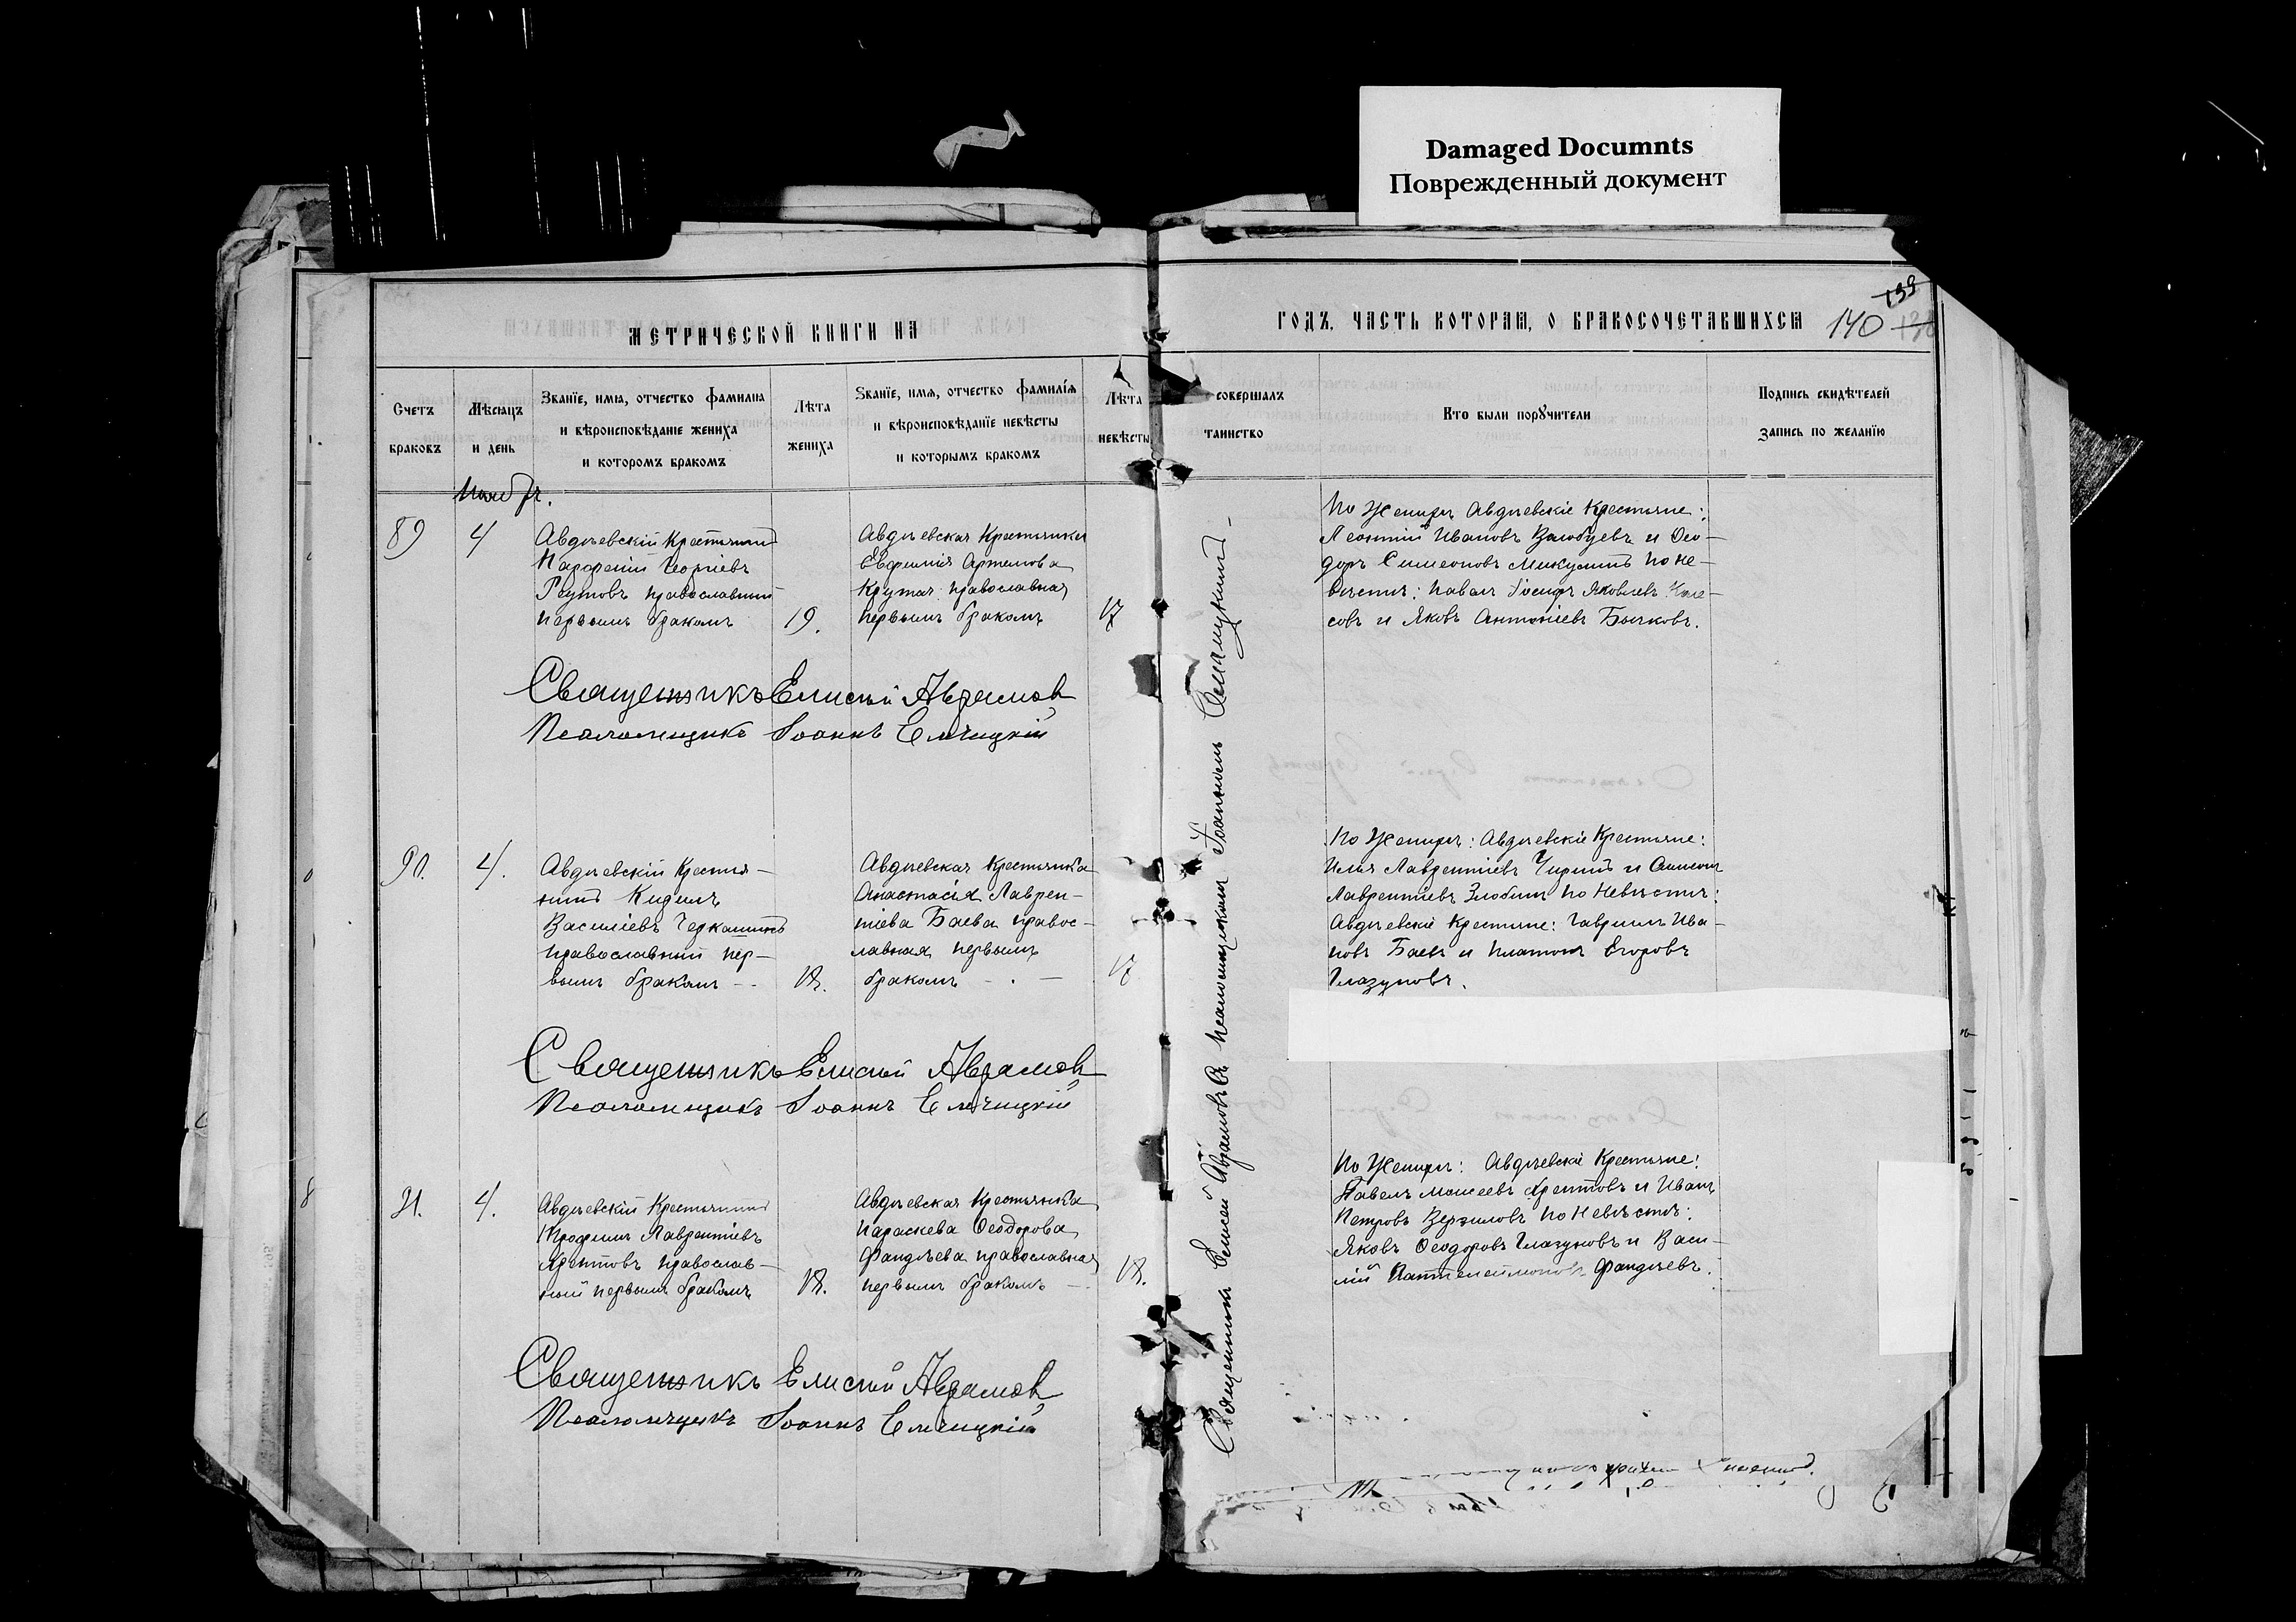 Damaged Documnts
Поврежденный документ
МЕТРИЧЕСКОЙ КНИГИ НА
ГОДЪ, ЧАСТЬ КОТОРАЯ, О БРАКОСОЧЕТАВШИХСЯ
140
139
Счетъ браковъ
Мѣсяцъ и день
Званїе, имя, отчество фамилиа
и вѣроисповѣданіе жениха
и которомъ бракомъ
Лѣта жениха
Званїе, имя, отчество фамилїя
и вѣроисповѣданїе невѣсты
и которымъ бракомъ
Лѣта невѣсты
совершалъ
таинство
Кто были порꙋчители
Подпись свидѣтелей
запись по желанїю
Ноябрь.
89
4
Авдѣевскій Крестьянинъ
Парфеній Георгіевъ
Реутовъ православный
первымъ бракомъ
19.
Авдѣевская Крестьянка
Евфимія Артемова
Крутая православная
первымъ бракомъ
17
По Женихѣ Авдѣевскіе Крестьяне:
Леонтій Ивановъ и Ѳео-
доръ Симеоновъ Микулинъ по не-
вѣстѣ: Іосифъ Яковлевъ
совъ и Яковъ Антоніевъ Бычковъ.
Священникъ Елисей Аврамов
Псаломщикъ Іоаннъ
90.
4.
Авдѣевскій Крестья-
нинъ
Василіевъ Черкашинъ
православный пер-
вымъ бракомъ
18.
Авдѣевская Крестьянка
Анастасія Лаврен-
тіева Баева правос-
лавная первымъ
бракомъ
17
По Женихѣ: Авдѣевскіе Крестьяне:
Илья Лаврентіевъ и Симеонъ
Лаврентіевъ Злобинъ по Невѣстѣ:
Авдѣевскіе Крестьяне: Гавріилъ Ива-
новъ Баевъ и Платонъ Егоровъ
Глазуновъ.
Священникъ Елисей Аврамов
Псаломщикъ Іоаннъ
91.
4.
Авдѣевскій Крестьянинъ
Трофимъ Лаврентіевъ
православ-
ный первымъ бракомъ
18.
Авдѣевская Крестьянка
Параскева Ѳеодорова
Фандѣева православная
первымъ бракомъ
18.
По Женихѣ: Авдѣевскіе Крестьяне:
Павелъ Моисеевъ и Иванъ
Петровъ Верзиловъ по Невѣстѣ:
Яковъ Ѳеодоровъ Глазуновъ и Васи-
лій Пантелеймоновъ Фандѣевъ.
Священникъ Елисей Аврамов
Псаломщикъ Іоаннъ
Священникъ Елисей Аврамовъ съ псаломщикомъ Іоанномъ